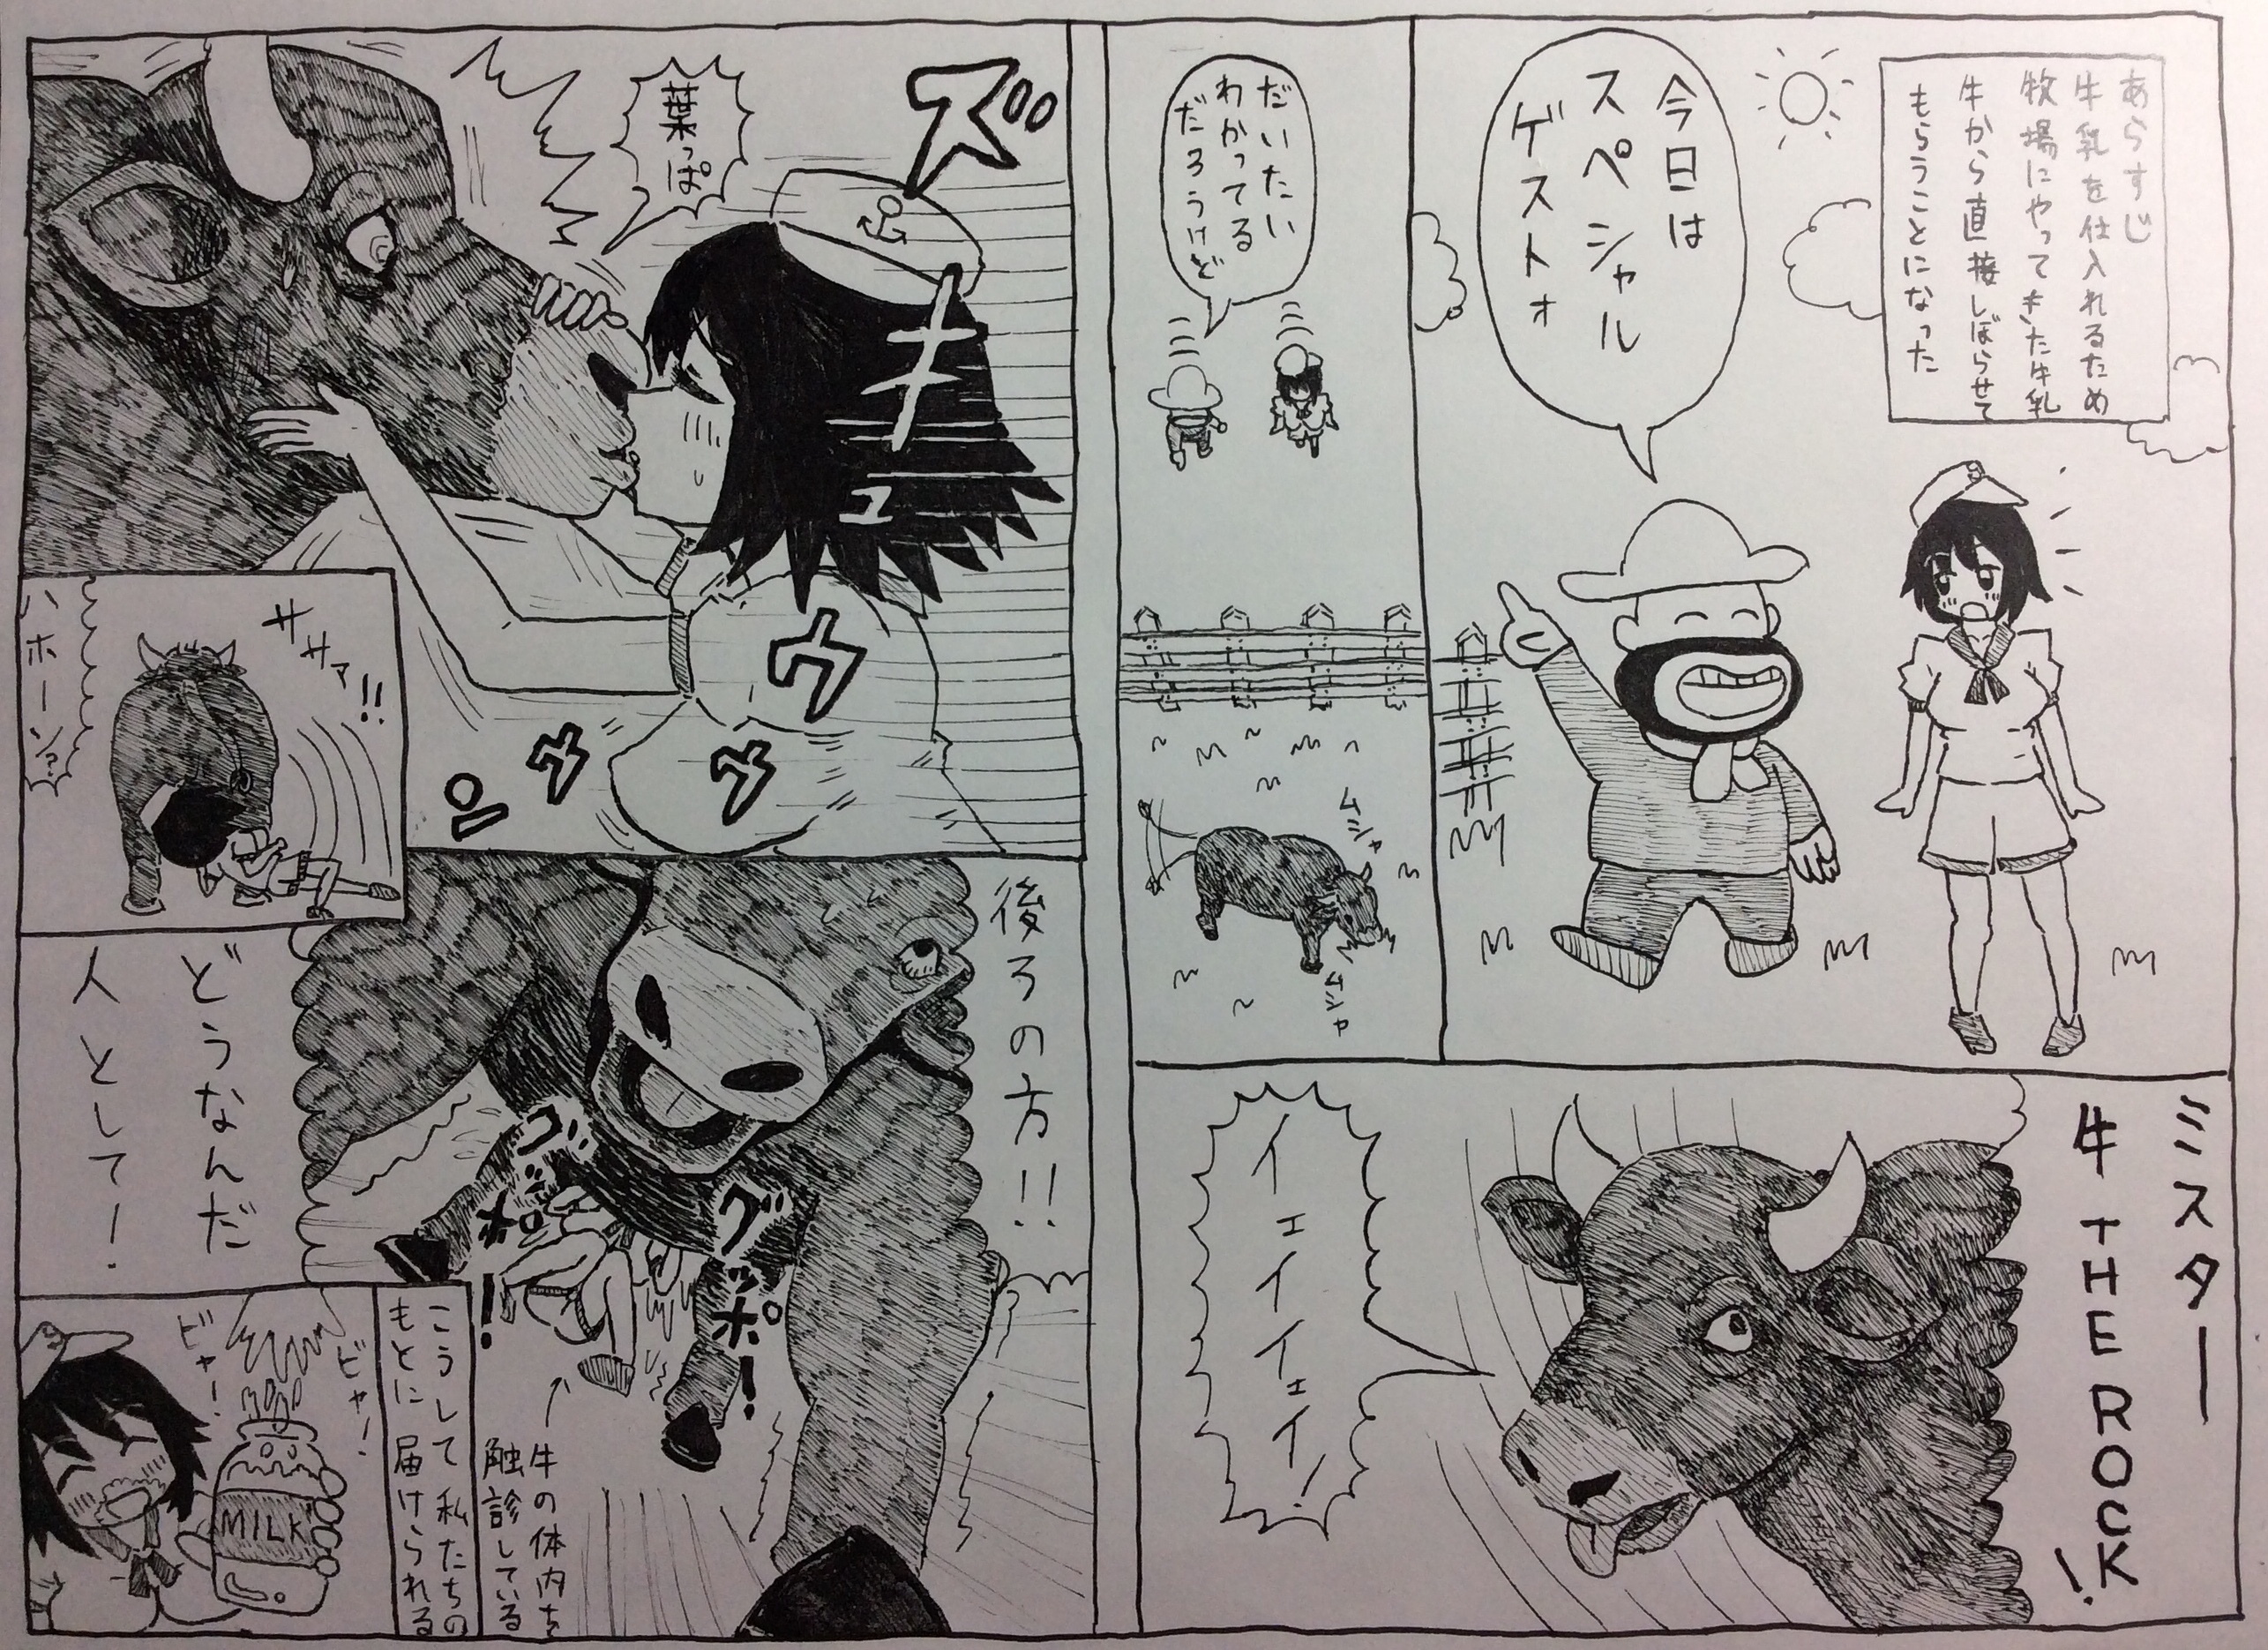 あらすじ
牛乳を仕入れるため
牧場にやってきた牛乳
牛から直接しぼらせて
もらうことになった
今日は
スペシャル
ゲストォ
だいたい
わかってる
だろうけど
ムシャ
ムシャ
ミスター
牛 THE ROCK!
イェイイェイ!
ズ
キュ
ウ
ウ
ウ
ン
葉っぱ
ササァ!!
ハホーン?
後ろの方!!
グッポ!
グッポ!
牛の体内を
触診している
どうなんだ
人として!
こうして私たちの
もとに届けられる
ビャー!
ビャー!
MILK